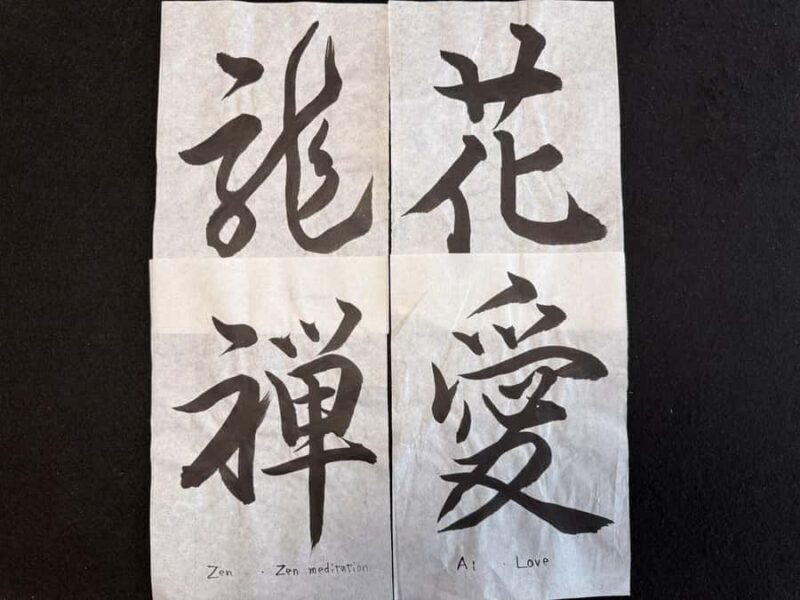 龍
花
禅
Zen · Zen meditation
愛
Ai · Love